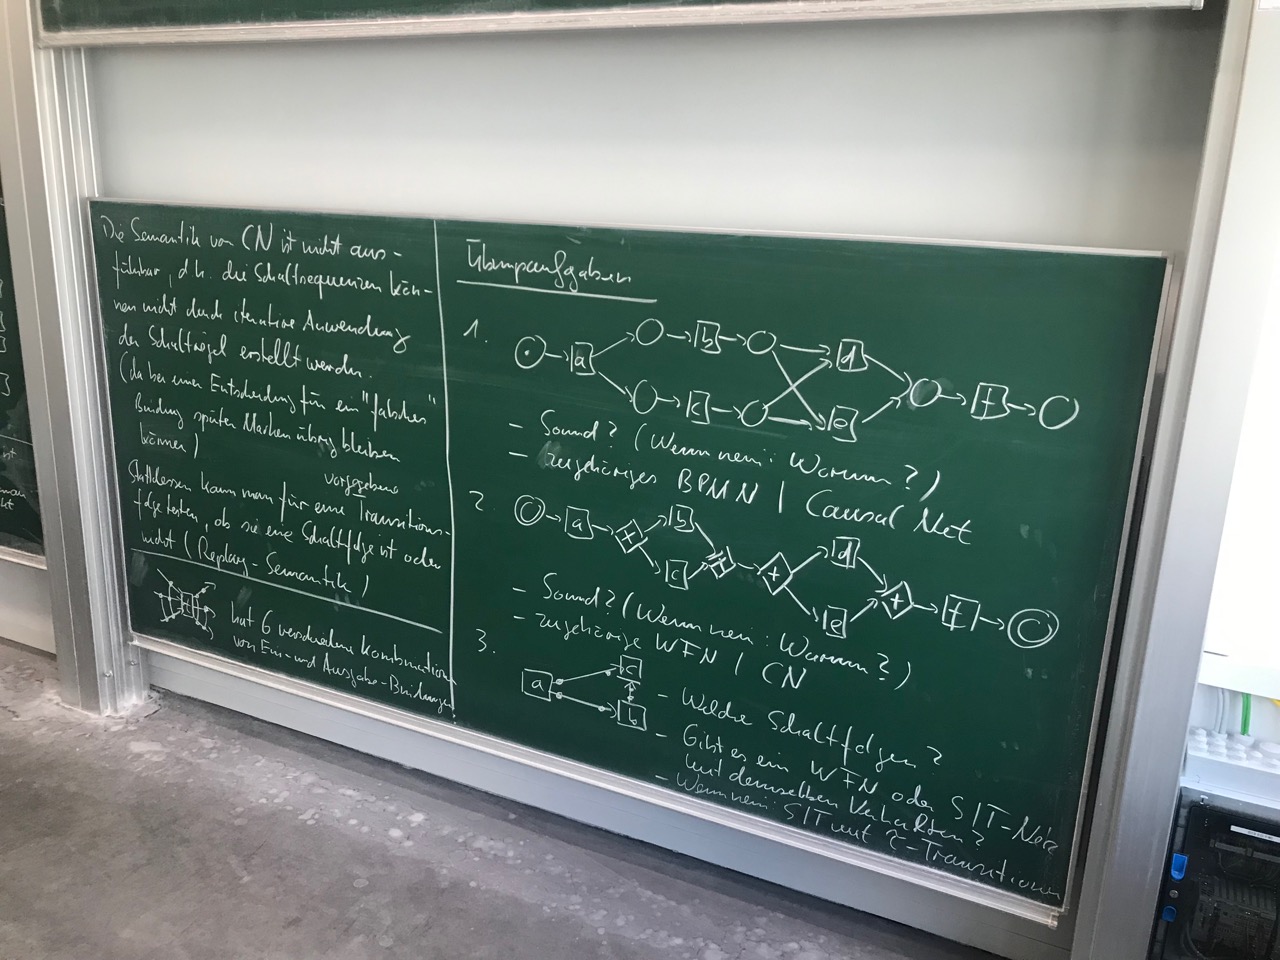 Die Semantik von CN ist nicht aus-
führbar, d.h. die Schaltsequenzen kön-
nen nicht durch iterative Anwendung
der Schaltregel erstellt werden.
(da bei einer Entscheidung für ein "falsches"
Binding später Marken übrig bleiben
können)
vorgegebene
Stattdessen kann man für eine Transitions-
folge testen, ob sie eine Schaltfolge ist oder
nicht (Replay-Semantik)
hat 6 verschiedene Kombinationen
von Ein- und Ausgabe-Bindings
Übungsaufgaben
1.
a b c d e f
- Sound? (Wenn nein: Warum?)
- zugehöriges BPMN / Causal Net
2.
a + b c + d e + f
- Sound? (Wenn nein: Warum?)
- zugehörige WFN / CN
3.
a c b
- Welche Schaltfolgen?
- Gibt es ein WFN oder S/T-Netz
mit demselben Verhalten?
- Wenn nein: S/T mit τ-Transitionen